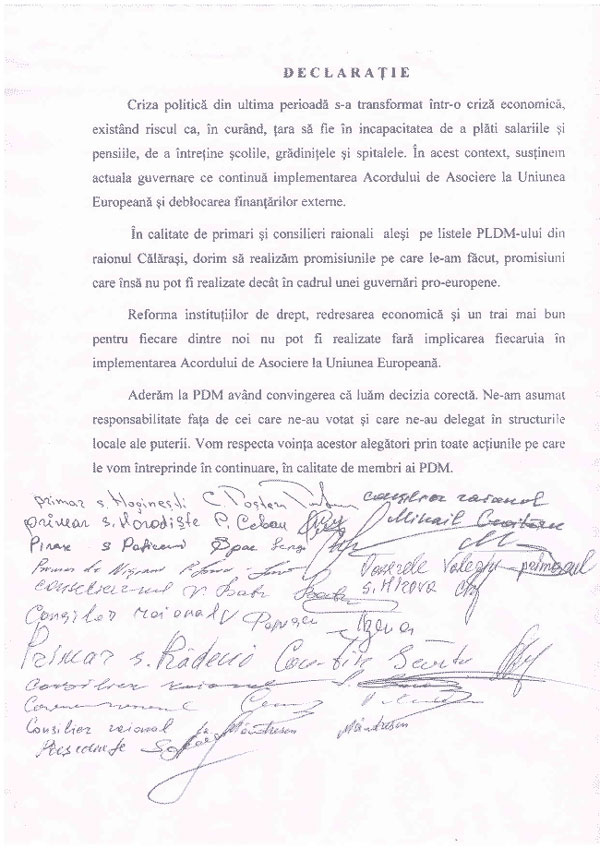 DECLARAȚIE
Criza politică din ultima perioadă s-a transformat într-o criză economică,
existând riscul ca, în curând, țara să fie în incapacitatea de a plăti salariile și
pensiile, de a întreține școlile, grădinițele și spitalele. În acest context, susținem
actuala guvernare ce continuă implementarea Acordului de Asociere la Uniunea
Europeană și deblocarea finanțărilor externe.
În calitate de primari și consilieri raionali aleși pe listele PLDM-ului din
raionul Călărași, dorim să realizăm promisiunile pe care le-am făcut, promisiuni
care însă nu pot fi realizate decât în cadrul unei guvernări pro-europene.
Reforma instituțiilor de drept, redresarea economică și un trai mai bun
pentru fiecare dintre noi nu pot fi realizate fară implicarea fiecaruia în
implementarea Acordului de Asociere la Uniunea Europeană.
Aderăm la PDM având convingerea că luăm decizia corectă. Ne-am asumat
responsabilitate fața de cei care ne-au votat și care ne-au delegat în structurile
locale ale puterii. Vom respecta voința acestor alegători prin toate acțiunile pe care
le vom întreprinde în continuare, în calitate de membri ai PDM.
primar s. C.
consilier raional
primar s. Horodiște P. Ceban
Mihail
s.
primar
s. Hîrova
raional
Primar s. Rădeni
Consilier raional
Consilier raional Mândrescu
Președinte